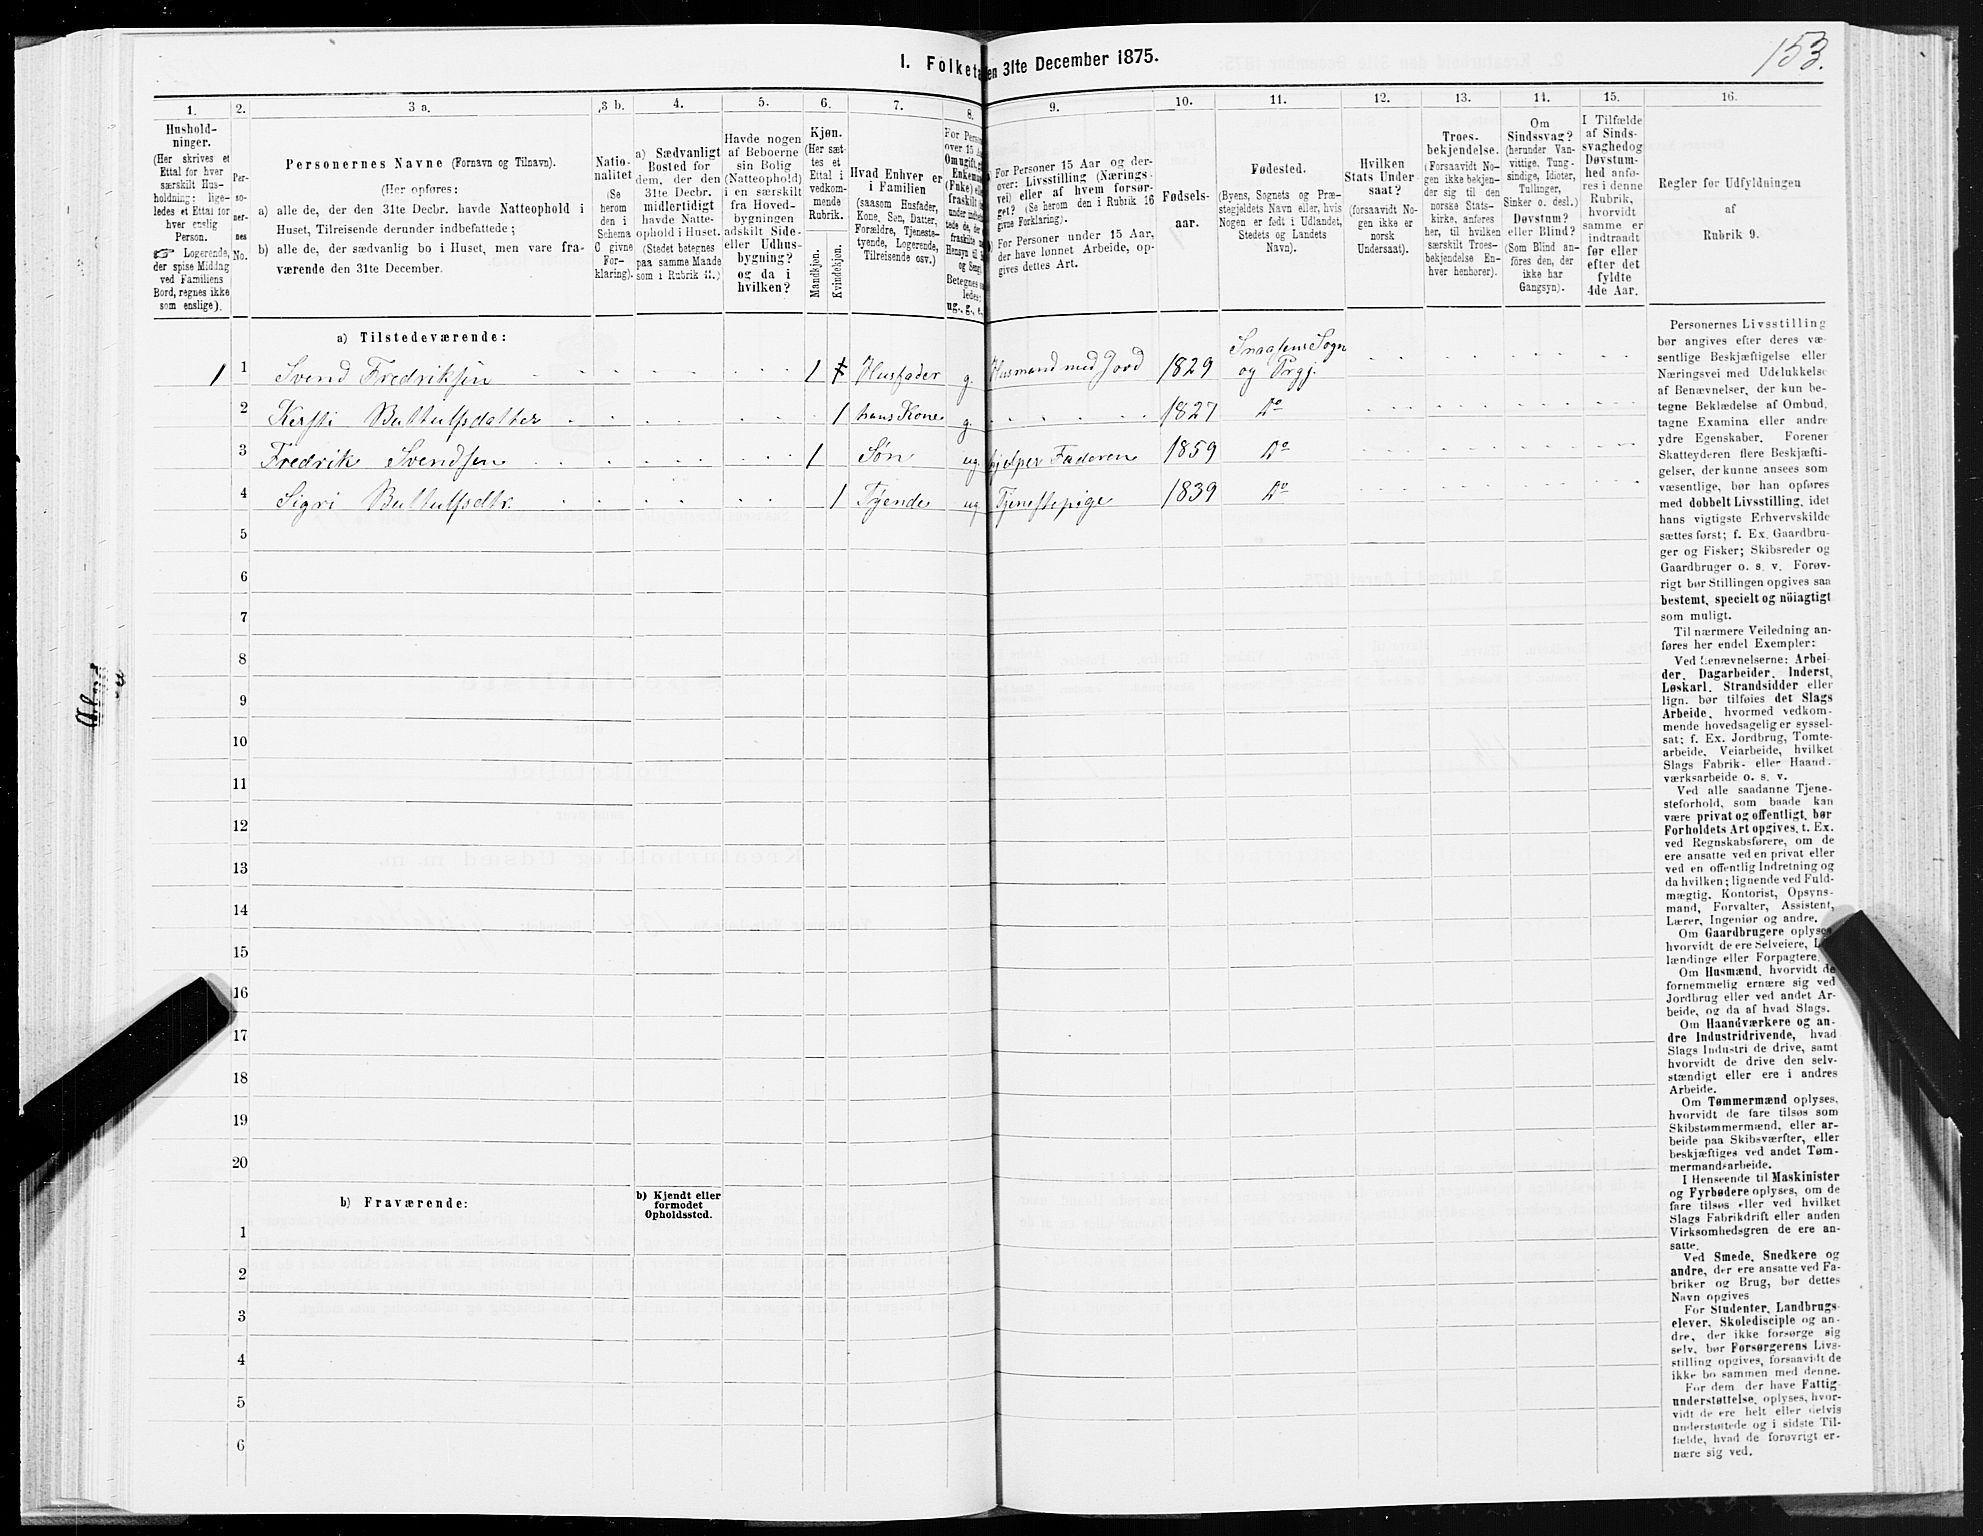 153.
I. Folketa en 31te December 1875.
1. 2. 3 a. 3 b. 4. 5. 6. 7. 8. 9. 10. 11. 12. 13. 14. 15. 16.
Hushold-
ninger.
(Her skrives et
Ettal for hver
særskilt Hus-
holdning; lige-
ledes et Ettal for
hver enslig
Person.
☞ Logerende,
der spise Middag
ved Familiens
Bord, regnes ikke
som enslige).
Per-
so-
ner-
nes
No.
Personernes Navne (Fornavn og Tilnavn).
(Her opføres:
a) alle de, der den 31te Decbr. havde Natteophold i
Huset, Tilreisende derunder indbefattede;
b) alle de, der sædvanlig bo i Huset, men vare fra-
værende den 31te December.
Natio-
nalitet
(Se
herom
den i
Schema
C givne
For-
klaring).
a) Sædvanligt
Bosted for
dem, der den
31te Decbr.
midlertidigt
havde Natte-
ophold i Huset.
(Stedet betegnes
paa samme Maade
som i Rubrik 11.)
Havde nogen
af Beboerne
sin Bolig
(Natteophold)
i en særskilt
fra Hoved-
bygningen
adskilt Side-
eller Udhus-
bygning?
og da i
hvilken?
Kjøn.
(Her sæt-
tes et
Ettal i
vedkom-
mende
Rubrik.
Mandkjøn.
Kvindekjøn.
Hvad Enhver er
i Familien
(saasom Husfader,
Kone, Søn, Datter,
Forældre, Tjeneste-
tyende, Logerende,
Tilreisende osv.)
For Perso
over 15 A
Om ugift, g
Enkeman
(Enke) elle
fraskilt
Hensyn til
og Seng
Betegnes s
ledes:
ug., g., e.
For Personer 15 Aar og der-
over: Livsstilling (Nærings-
vei) eller af hvem forsør-
get? (Se herom den i Rubrik 16
givne Forklaring).
For Personer under 15 Aar,
der have lønnet Arbeide, op-
gives dettes Art.
Fødsels-
aar.
Fødested.
(Byens, Sognets og Præ-
stegjeldets Navn eller, hvis
Nogen er født i Udlandet,
Stedets og Landets
Navn).
Hvilken
Stats Under-
saat?
(forsaavidt No-
gen ikke er
norsk
Undersaat).
Troes-
bekjendelse.
(Forsaavidt No-
gen ikke bekjen-
der sig til den
norske Stats-
kirke, anføres
her, til hvilken
særskilt Troes-
bekjendelse En-
hver henhører).
Om
Sindssvag?
(herunder Van-
vittige, Tung-
sindige, Idioter,
Tullinger,
Sinker o. desl.)
Døvstum?
eller Blind?
(Som Blind an-
føres den, der
ikke har
Gangsyn).
I Tilfælde
af Sinds-
svaghedog
Døvstum-
hed anfø-
res i denne
Rubrik,
hvorvidt
samme er
indtraadt
før eller
efter det
fyldte
4de Aar.
Regler for Udfyldningen
af
Rubrik 9.
a) Tilstedeværende:
1 1 Svend Fredriksen 1 Husfader g. Husmand med Jord 1829 Snaasens Sogn og Prgj.
2 Kirsti Bultulfsdatter 1 hans Kone g. 1827 Do
3 Fredrik Svendsen 1 Søn ug. hjelper Faderen 1859 Do
4 Sigri Bultulfsdtr. 1 Tyende ug Tjenestepige 1839 Do
5
6
7
8
9
10
11
12
13
14
15
16
17
18
19
20
b) Fraværende:
b) Kjendt eller
formodet
Opholdssted.
1
2
3
4
5
6
Personernes Livsstilling
bør angives efter deres væ-
sentlige Beskjæftigelse eller
Næringsvei med Udelukkelse
af Benævnelser, der kun be-
tegne Beklædelse af Ombud,
tagne Examina eller andre
ydre Egenskaber. Forener
Skatteyderen flere Beskjæfti-
gelser, der kunne ansees som
væsentlige, bør han opføres
med dobbelt Livsstilling, idet
hans vigtigste Erhvervskilde
sættes først; f. Ex. Gaardbru-
ger og Fisker; Skibsreder og
Gaardbruger o. s. v. Forøv-
rigt bør Stillingen opgives saa
bestemt, specielt og nöiagtigt
som muligt.
Til nærmere Veiledning an-
føres her endel Exempler:
Ved Benævnelserne: Arbei-
der, Dagarbeider, Inderst,
Løskarl, Strandsidder eller
lign. bør tilføies det Slags
Arbeide, hvormed vedkom-
mende hovedsagelig er syssel-
sat; f. Ex. Jordbrug, Tomte-
arbeide, Veiarbeide, hvilket
Slags Fabrik- eller Haand-
værksarbeide o. s. v.
Ved alle saadanne Tjene-
steforhold, som baade kan
være privat og offentligt, bør
Forholdets Art opgives, t. Ex.
ved Regnskabsførere, om de
ere ansatte ved en privat eller
ved en offentlig Indretning og
da hvilken; lignende ved Fuld-
mægtig, Kontorist, Opsyns-
mand, Forvalter, Assistent,
Lærer, Ingeniør og andre.
Om Gaardbrugere oplyses,
hvorvidt de ere Selveiere, L
lændinge eller Forpagtere.
Om Husmænd, hvorvidt de
fornemmelig ernære sig ved
Jordbrug eller ved andet Ar-
beide, og da af hvad Slags.
Om Haandværkere og an-
dre Industridrivende, hvad
Slags Industri de drive, samt
hvorvidt de drive den selv-
stændigt eller ere i andres
Arbeide.
Om Tømmermænd oplyses,
hvorvidt de fare tilsøs som
Skibstømmermænd, eller ar-
beide paa Skibsværfter, eller
beskjæftiges ved andet Tøm-
mermandsarbeide.
I Henseende til Maskinister
og Fyrbødere oplyses, om de
fare tilsøs eller ved hvilket
Slags Fabrikdrift eller anden
Virksomhedsgren de ere an-
satte.
Ved Smede, Snedkere og
andre, der ere ansatte ved Fa-
briker og Brug, bør dettes
Navn opgives
For Studenter, Landbrugs-
elever, Skoledisciple og an-
dre, der ikke forsørge sig
selv, bør Forsørgerens Livs-
stilling opgives, forsaavidt de
ikke bo sammen med denne.
For dem der have Fattig-
understøttelse, oplyses, hvor-
vidt de ere helt eller delvis
understøttede og i sidste Til-
fælde, hvad de forøvrigt er-
nære sig ved.